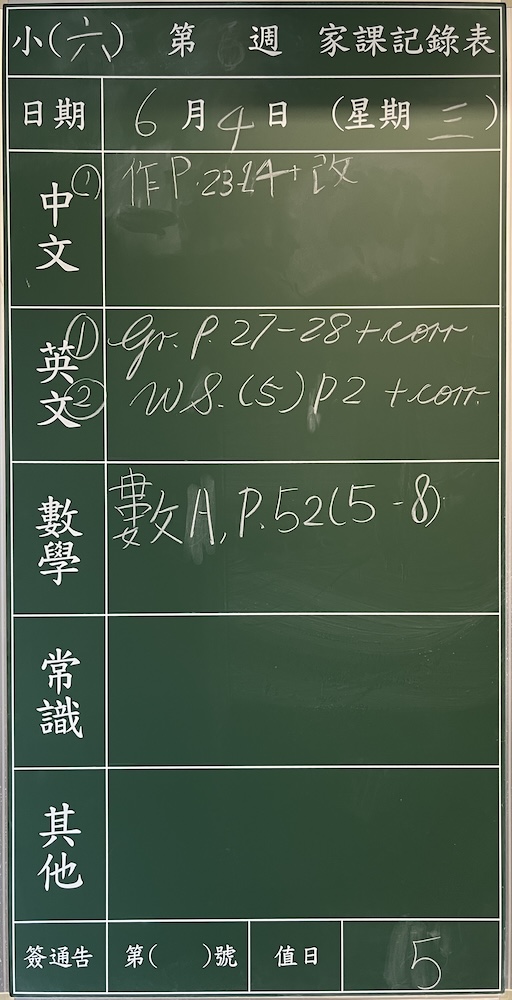 小(六) 第 週 家課記錄表
日期 6月4日 (星期三)
中文 ① 作P.23-24+改
英文 ① Gr. P. 27-28+corr
② WS. (5) P2 +corr.
數學 數A, P.52(5-8)
常識
其他
簽通告 第( )號 值日 5